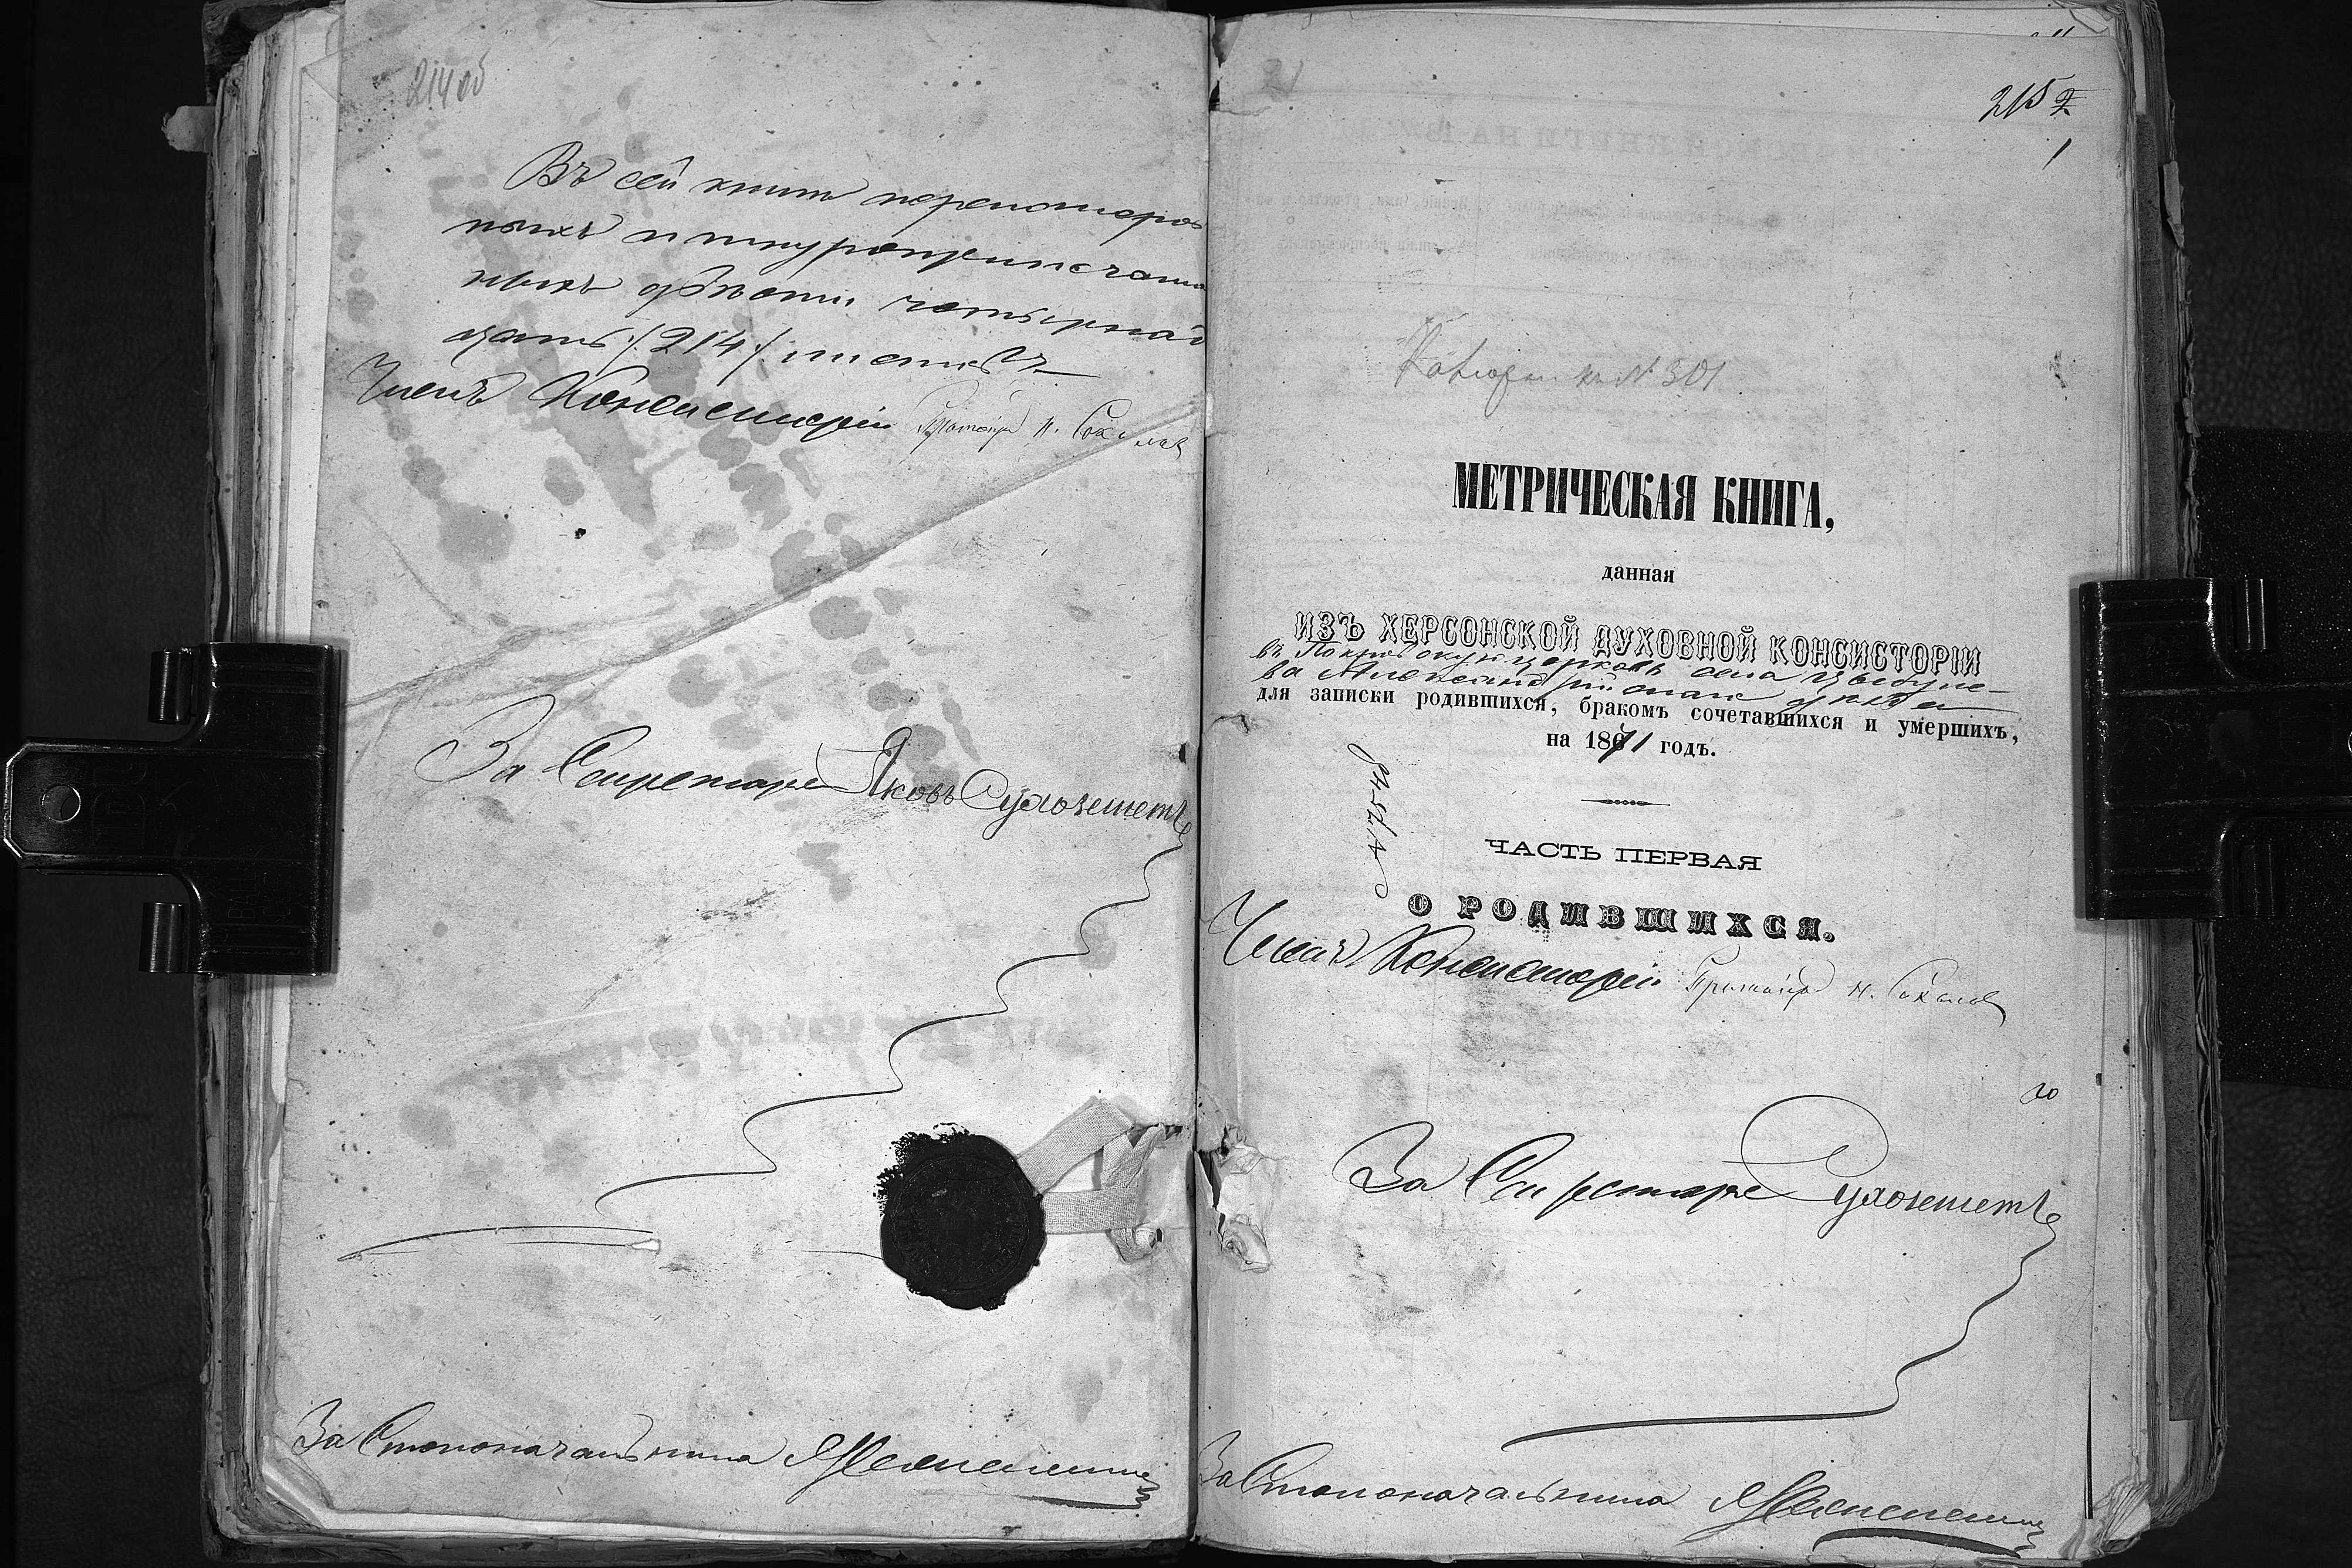 214 об
Въ сей книгѣ переномеров
ныхъ и шнурозапечатан
ныхъ двѣсти четырнад
цать /214/ листовъ
Членъ Консисторіи Протоіерей Н. Соколов
За Секретаря Яковъ Сухозешетъ
За Столоначальника
215 2
1
№ 301
МЕТРИЧЕСКАЯ КНИГА,
данная
ИЗЪ ХЕРСОНСКОЙ ДУХОВНОЙ КОНСИСТОРІИ
въ Покровскую церковь села Цебуле-
ва Александрійскаго уѣзда
для записки родившихся, бракомъ сочетавшихся и умершихъ,
на 1871 годъ.
ЧАСТЬ ПЕРВАЯ
О РОДИВШИХСЯ.
Членъ Консисторіи Протоіерей Н. Соколов
За Секретаря Сухозешетъ
За Столоначальника